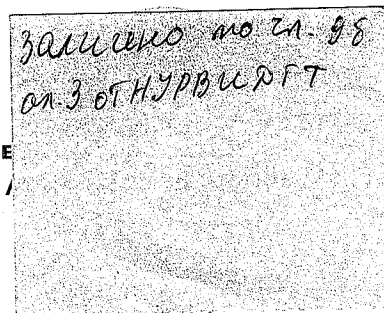 Заличено по чл. 9б
ал.3 от НУРВИДГТ